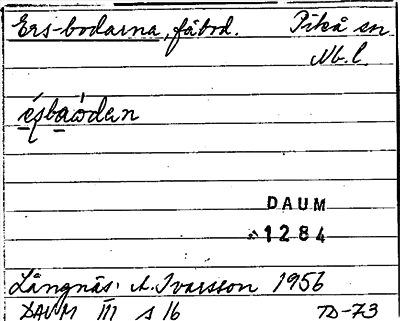 Ers-bodarna, fäbod. Piteå sn
Nb.l.
ésbaòdan
DAUM
1284
Långnäs. A. Ivarsson 1956
DAUM III s 16 TD-73